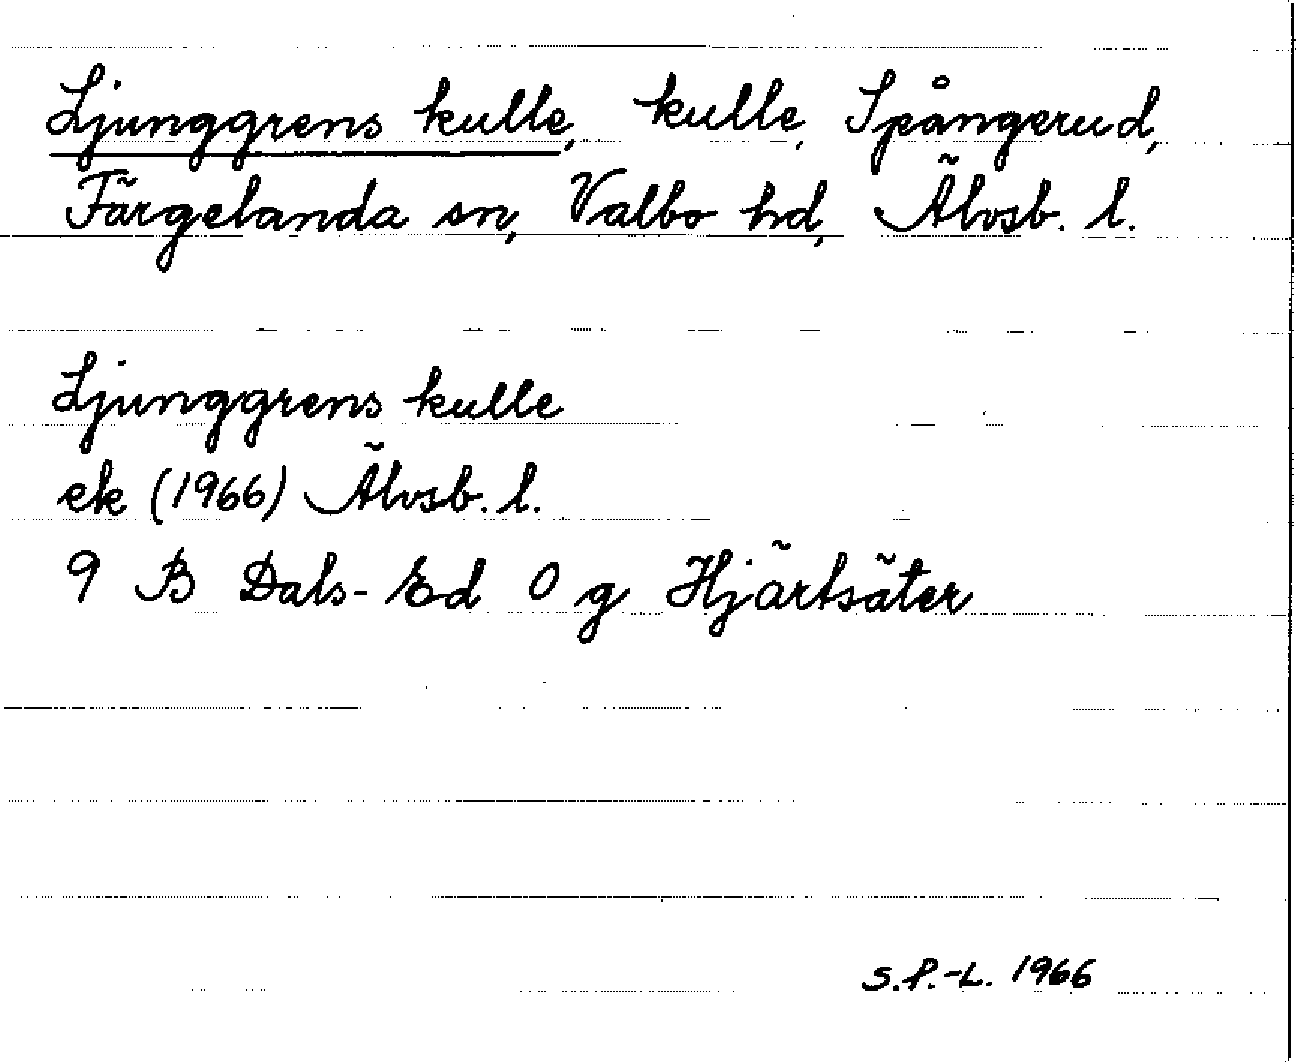 Ljunggrens kulle, kulle, Spångerud,
Färgelanda sn, Valbo hd, Älvsb. l.
Ljunggrens kulle
ek (1966) Älvsb. l.
9 B Dals-Ed 0 g Hjärtsäter
S.P.-L. 1966